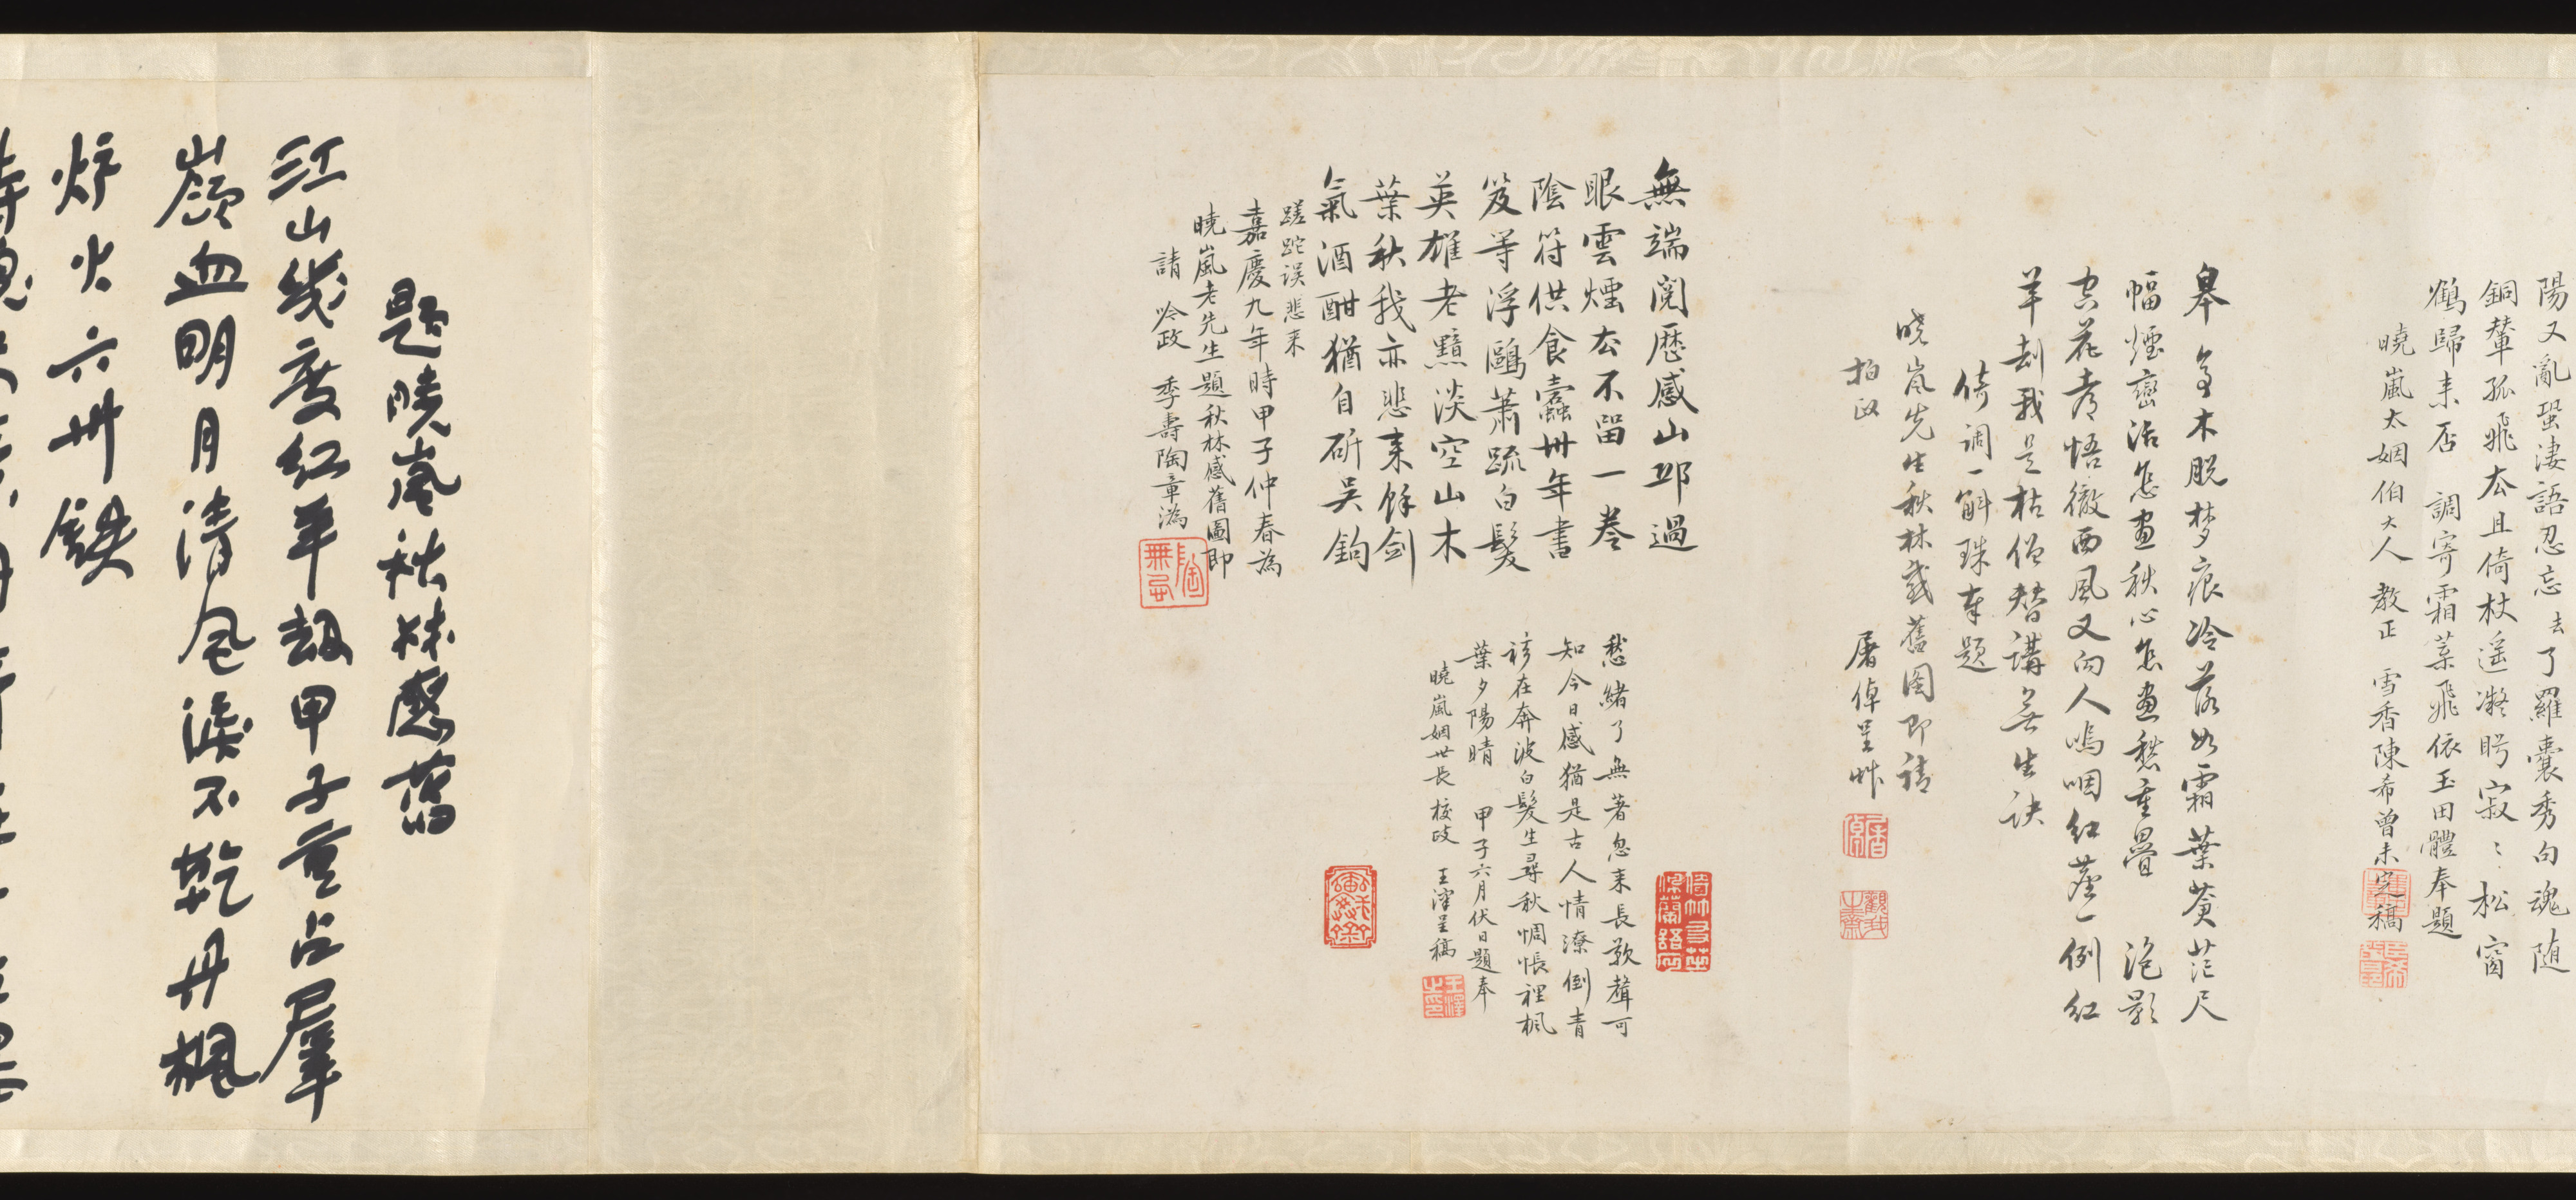 陽又亂蛩淒語忍忘去了羅囊秀句魂随
銅輦孤飛去且倚杖遥凝眄寂〻松窗
鶴歸来否 調寄霜葉飛依玉田體奉題
曉嵐太姻伯大人 教正 雪香陳希曾未定稿
皋 亭木脱梦痕冷落如霜葉蒼茫尺
幅煙巒活怎畫秋心怎畫愁重疊 泡影
空花彦悟徹西風又向人嗚咽紅塵一例紅
羊刼我是枯僧替講無生訣
倚調一斛珠奉題
曉嵐先生秋林感舊图即請
拍政 屠倬呈艸
無端閱歷感山邱過
眼雲煙去不留一卷
陰符供食蠹卅年書
笈等浮鷗蕭疏白髮
英雄老黯淡空山木
葉秋我亦悲来餘劍
氣酒酣猶自斫吴鉤
蹉跎误悲来
嘉慶九年時甲子仲春為
曉嵐老先生題秋林感舊圖即
請 吟政 季壽陶章溈
愁緒了無著忽来長歎聲可
知今日感猶是古人情潦倒青
衫在奔波白髮生尋秋惆悵裡楓
葉夕陽晴 甲子六月伏日題奉
曉嵐姻世長 校政 王澤呈稿
王澤之印
題曉嵐秋林感舊
江山幾度紅羊劫甲子重占羣
嶺血明月清風淚不乾丹楓
炉火六州鐵